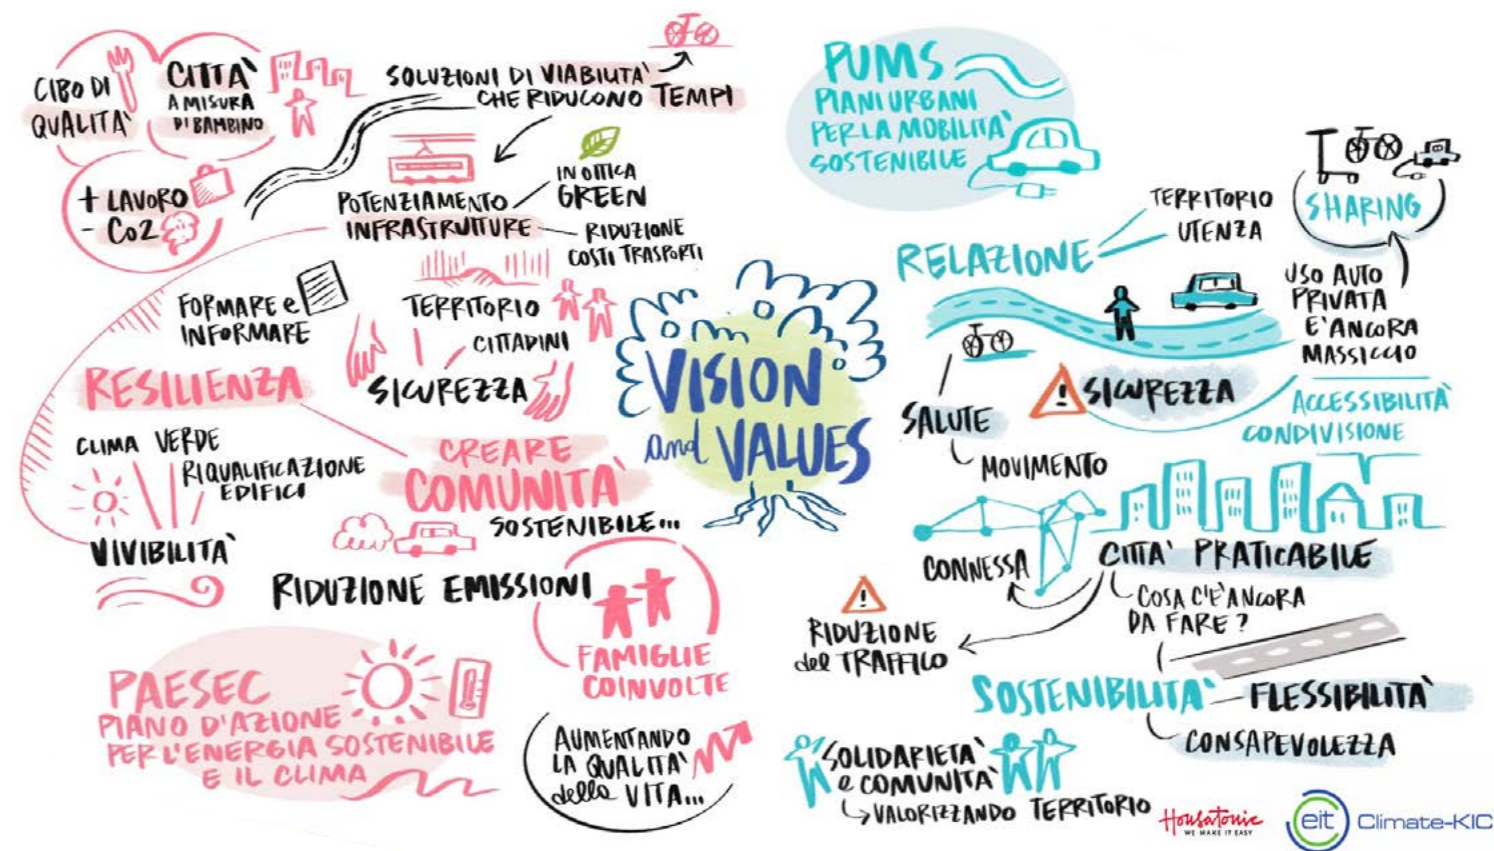 CIBO DI
QUALITA'
CITTA'
A MISURA
DI BAMBINO
+ LAVORO
- CO2
SOLUZIONI DI VIABILITA'
CHE RIDUCONO TEMPI
POTENZIAMENTO
INFRASTRUTTURE
IN OTTICA
GREEN
RIDUZIONE
COSTI TRASPORTI
FORMARE e
INFORMARE
TERRITORIO
CITTADINI
SICUREZZA
RESILIENZA
CLIMA VERDE
RIQUALIFICAZIONE
EDIFICI
VIVIBILITA'
CREARE
COMUNITA'
SOSTENIBILE...
RIDUZIONE EMISSIONI
FAMIGLIE
COINVOLTE
PAESEC
PIANO D'AZIONE
PER L'ENERGIA SOSTENIBILE
E IL CLIMA
AUMENTANDO
LA QUALITA'
della VITA...
VISION
and VALUES
PUMS
PIANI URBANI
PER LA MOBILITA'
SOSTENIBILE
RELAZIONE
TERRITORIO
UTENZA
SHARING
USO AUTO
PRIVATA
E' ANCORA
MASSICCIO
SALUTE
MOVIMENTO
SICUREZZA
ACCESSIBILITA'
CONDIVISIONE
CONNESSA
CITTA' PRATICABILE
COSA C'E' ANCORA
DA FARE?
RIDUZIONE
del TRAFFICO
SOSTENIBILITA' FLESSIBILITA'
CONSAPEVOLEZZA
SOLIDARIETA'
e COMUNITA'
VALORIZZANDO TERRITORIO
Housatonic
WE MAKE IT EASY
eit Climate-KIC